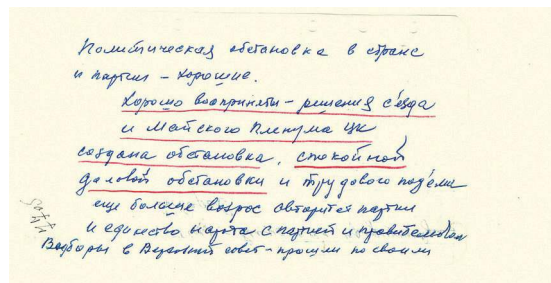 Политическая обстановка в стране
и партии – хорошие.
Хорошо восприняты – решения съезда
и майского Пленума ЦК
создана обстановка, спокойной
деловой обстановки и трудового подъема
еще больше возрос авторитет партии
и единство народа с партией и правительством
Выборы в Верховный совет – прошли по своим